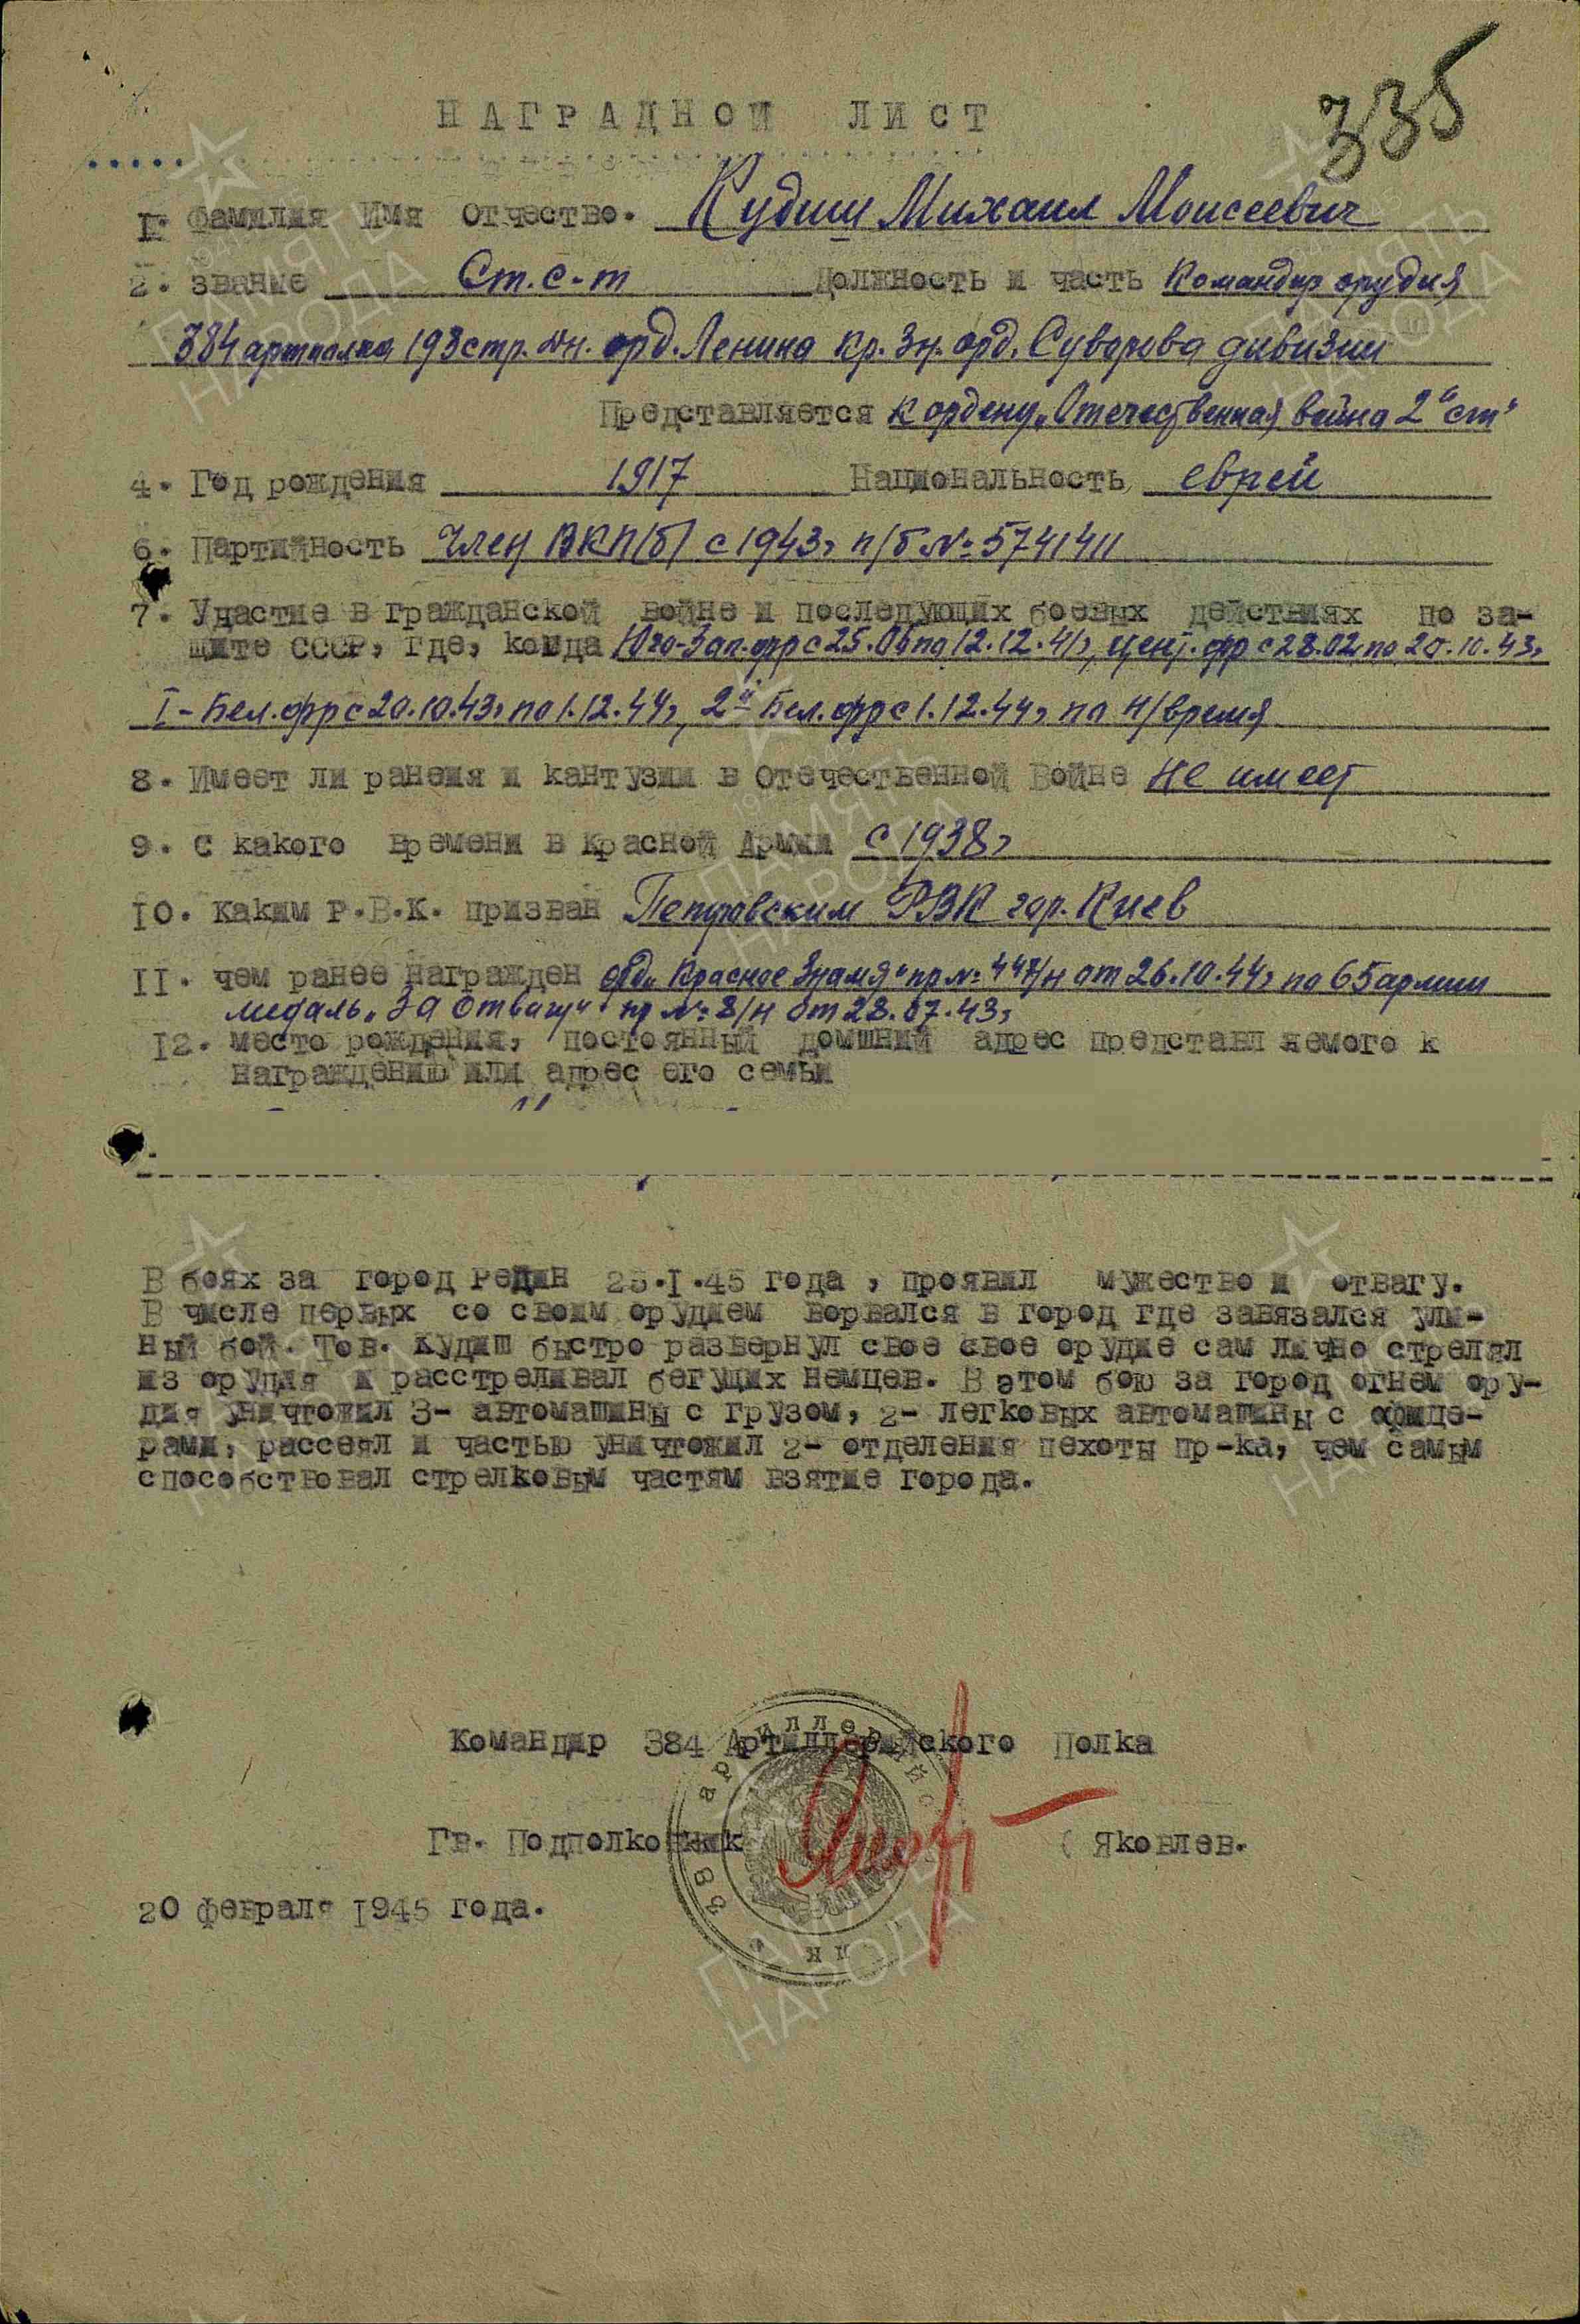 335
НАГРАДНОЙ ЛИСТ
I. Фамилия Имя Отчество. Кудиш Михаил Моисеевич
2. Звание Ст. с-т Должность и часть Командир орудия
384 артполка 193 стр. Дн. орд. Ленина Кр. Зн. орд. Суворова дивизии
Представляется к ордену „Отечественная война 2й ст"
4. Год рождения 1917 Национальность еврей
6. Партийность Член ВКП(б) с 1943г п/б №: 5741411
7. Участие в гражданской войне и последующих боевых действиях по за-
щите СССР, где, когда Юго-Зап. фр с 25.06 по 12.12.41г, Цент. фр с 28.02 по 20.10.43г
I-Бел. фр с 20.10.43г по 1.12.44г, 2й Бел. фр с 1.12.44г по н/время
8. Имеет ли ранеия и кантузии в Отечественной Войне не имеет
9. С какого времени в Красной Армии с 1938г
IO. Каким Р.В.К. призван Петровским РВК гор. Киев
II. чем ранее награжден орд. „Красное Знамя" пр №: 447/н от 26.10.44г по 65 армии
медаль „За отвагу" пр №: 8/н от 28.07.43г
I2. место рождения, постоянный домшний адрес представляемого к
награждению или адрес его семьи
В боях за город Редин 25.I.45 года, проявил мужество и отвагу.
В числе первых со своим орудием ворвался в город где завязался ули-
ный бой. Тов. Кудиш быстро развернул свое свое орудие сам лично стрелял
из орудия и расстреливал бегущих немцев. В этом бою за город огнем ору-
дия уничтожил 3- автомашины с грузом, 2- легковых автомашины с офице-
рами, рассеял и частью уничтожил 2- отделения пехоты пр-ка, чем самым
способствовал стрелковым частям взятие города.
Командир 384 Артиллерийского Полка
Гв. Подполковник ( Яковлев.
20 февраля I945 года.
ПАМЯТЬ НАРОДА